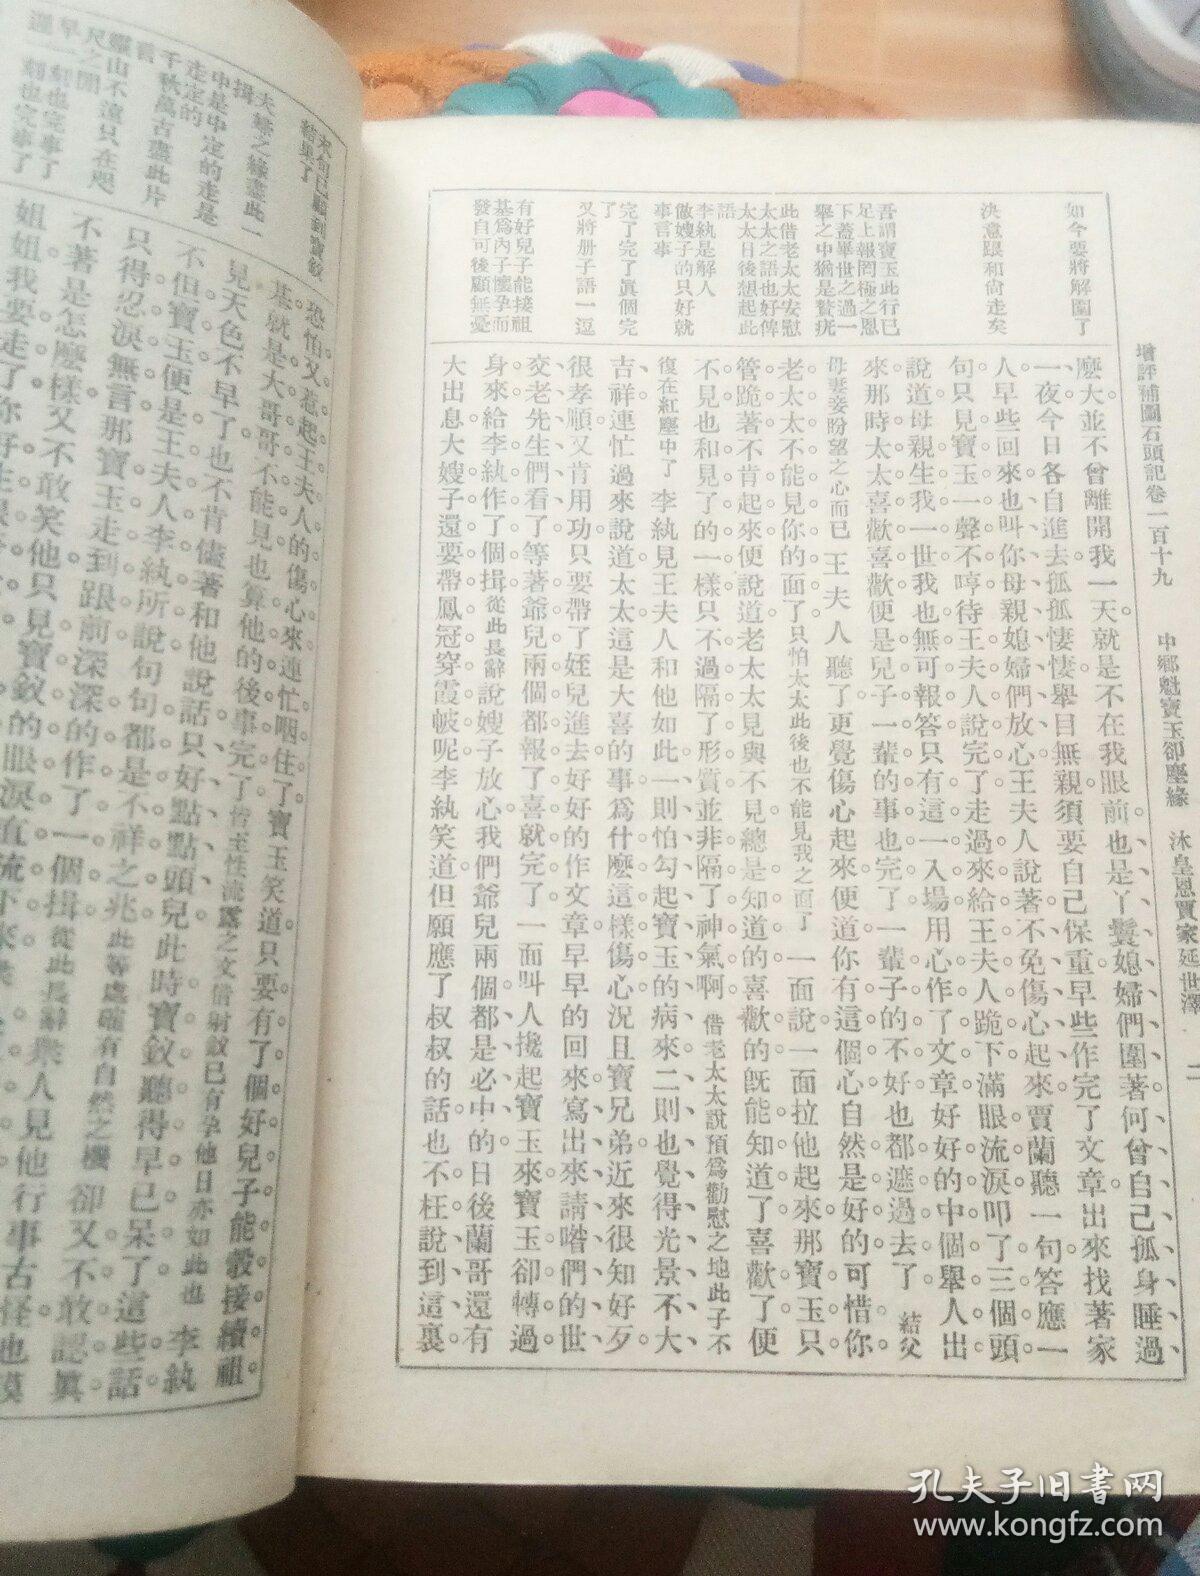 增評補圖石頭記卷一百十九　中鄉魁寶玉卻塵緣　沐皇恩賈家延世澤　二
如今要將解圍了
決意跟和尚走矣
吾謂寶玉此行已
足上報罔極之恩
下蓋畢世之過一
舉之中猶是贅疣
此借老太太安慰
太太之語也好俾
太太日後想起此
語
李紈是解人
做嫂子的只好就
事言事
完了完了眞個完
了
又將册子語一逗
有好兒子能接祖
基爲內子懷孕而
發自可後顧無憂
麽大並不曾離開我一天就是不在我眼前也是丫鬟媳婦們圍著何曾自己孤身睡過
一夜今日各自進去孤孤悽悽舉目無親須要自己保重早些作完了文章出來找著家
人早些回來也叫你母親媳婦們放心王夫人說著不免傷心起來賈蘭聽一句答應一
句只見寶玉一聲不哼待王夫人說完了走過來給王夫人跪下滿眼流淚叩了三個頭
說道母親生我一世我也無可報答只有這一入場用心作了文章好好的中個舉人出
來那時太太喜歡喜歡便是兒子一輩的事也完了一輩子的不好也都遮過去了 結父
母妻妾盼望之心而已 王夫人聽了更覺傷心起來便道你有這個心自然是好的可惜你
老太太不能見你的面了 只怕太太此後也不能見我之面了 一面說一面拉他起來那寶玉只
管跪著不肯起來便說道老太太見與不見總是知道的喜歡的旣能知道了喜歡了便
不見也和見了的一樣只不過隔了形質並非隔了神氣啊 借老太太說預爲勸慰之地此子不
復在紅塵中了 李紈見王夫人和他如此一則怕勾起寶玉的病來二則也覺得光景不大
吉祥連忙過來說道太太這是大喜的事爲什麽這樣傷心況且寶兄弟近來很知好歹
很孝順又肯用功只要帶了姪兒進去好好的作文章早早的回來寫出來請喒們的世
交老先生們看了等著爺兒兩個都報了喜就完了一面叫人攙起寶玉來寶玉卻轉過
身來給李紈作了個揖 從此長辭 說嫂子放心我們爺兒兩個都是必中的日後蘭哥還有
大出息大嫂子還要帶鳳冠穿霞帔呢李紈笑道但願應了叔叔的話也不枉說到這裏
次句已顧到寶釵
結果了
夫緣之緣盡此一
揖
中是中定的走是
走定的
千秋萬古盡此片
言
靈山不遠只在咫
尺之間
早一刻也完事了
遲一刻也完事了
恐怕又惹起王夫人的傷心來連忙咽住了寶玉笑道只要有了個好兒子能彀接續祖
基就是大哥哥不能見也算他的後事完了 皆主性流露之文借射釵已有孕他日亦如此也 李紈
見天色不早了也不肯儘著和他說話只好點點頭兒此時寶釵聽得早已呆了這些話
不但寶玉便是王夫人李紈所說句句都是不祥之兆 此等處確有自然之機 卻又不敢認眞
只得忍淚無言那寶玉走到跟前深深的作了一個揖 從此長辭 衆人見他行事古怪也摸
不著是怎麽樣又不敢笑他只見寶釵的眼淚直流下來衆
姐姐我要走了你好生跟